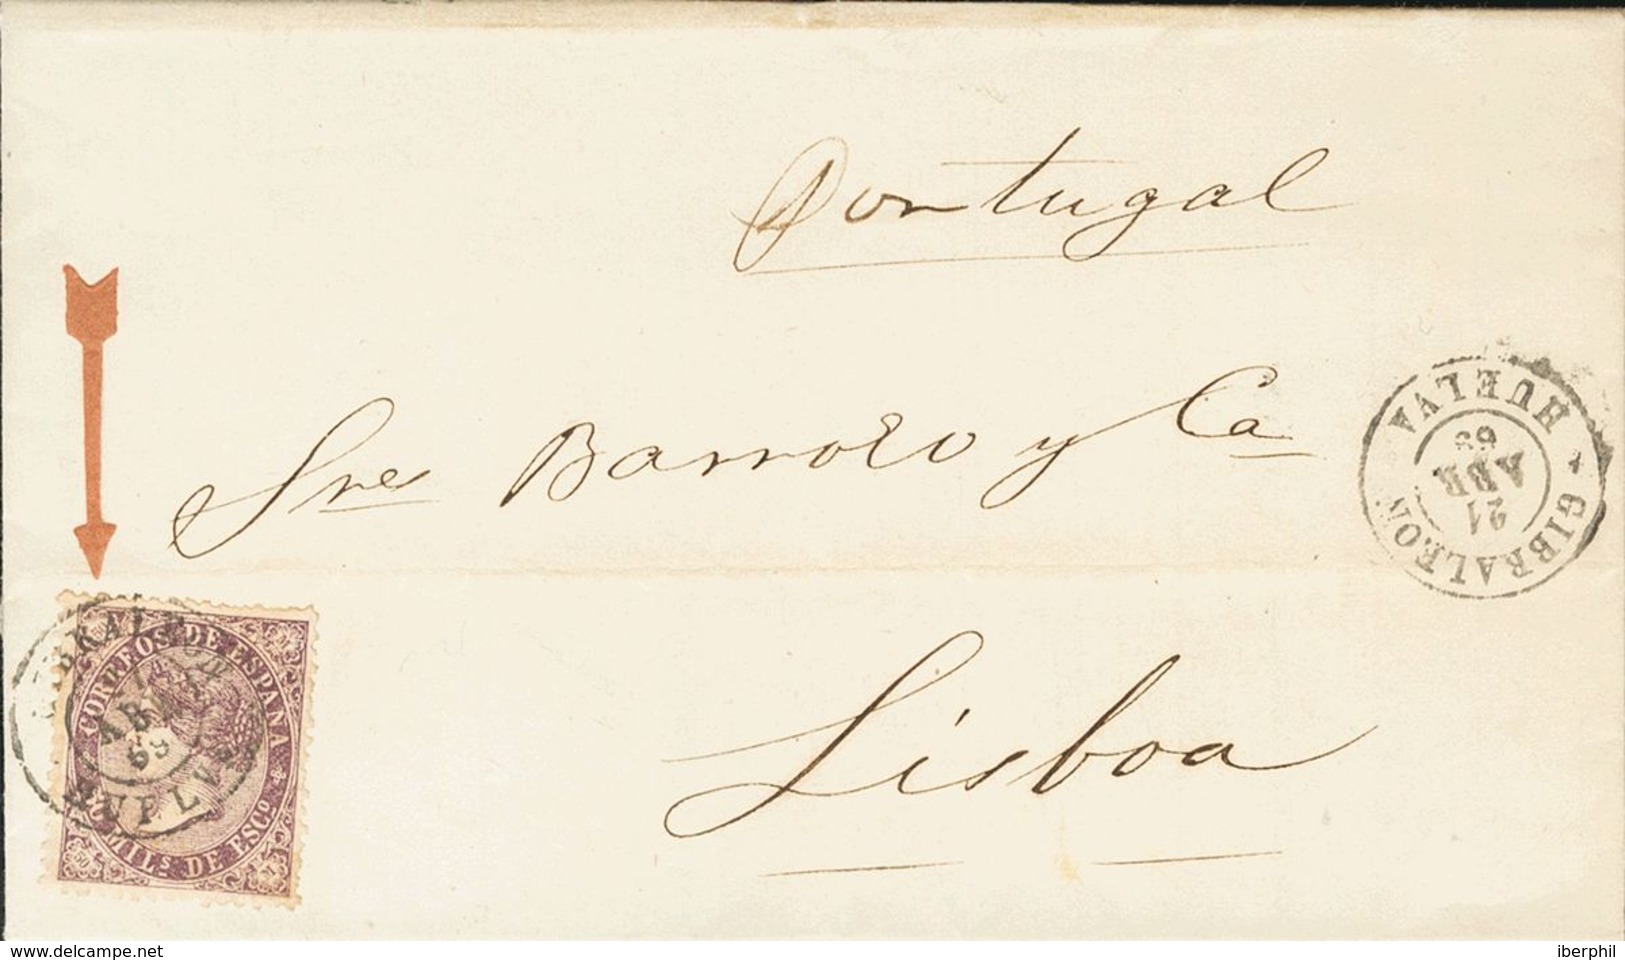 Portugal
Sres Barrozo y Ca
Lisboa
GIBRALEON
HUELVA
21
ABR
69
CORREOS DE ESPAÑA
50 MILs DE ESCO
50
ABR
69
HUELVA
www.delcampe.net
iberphil